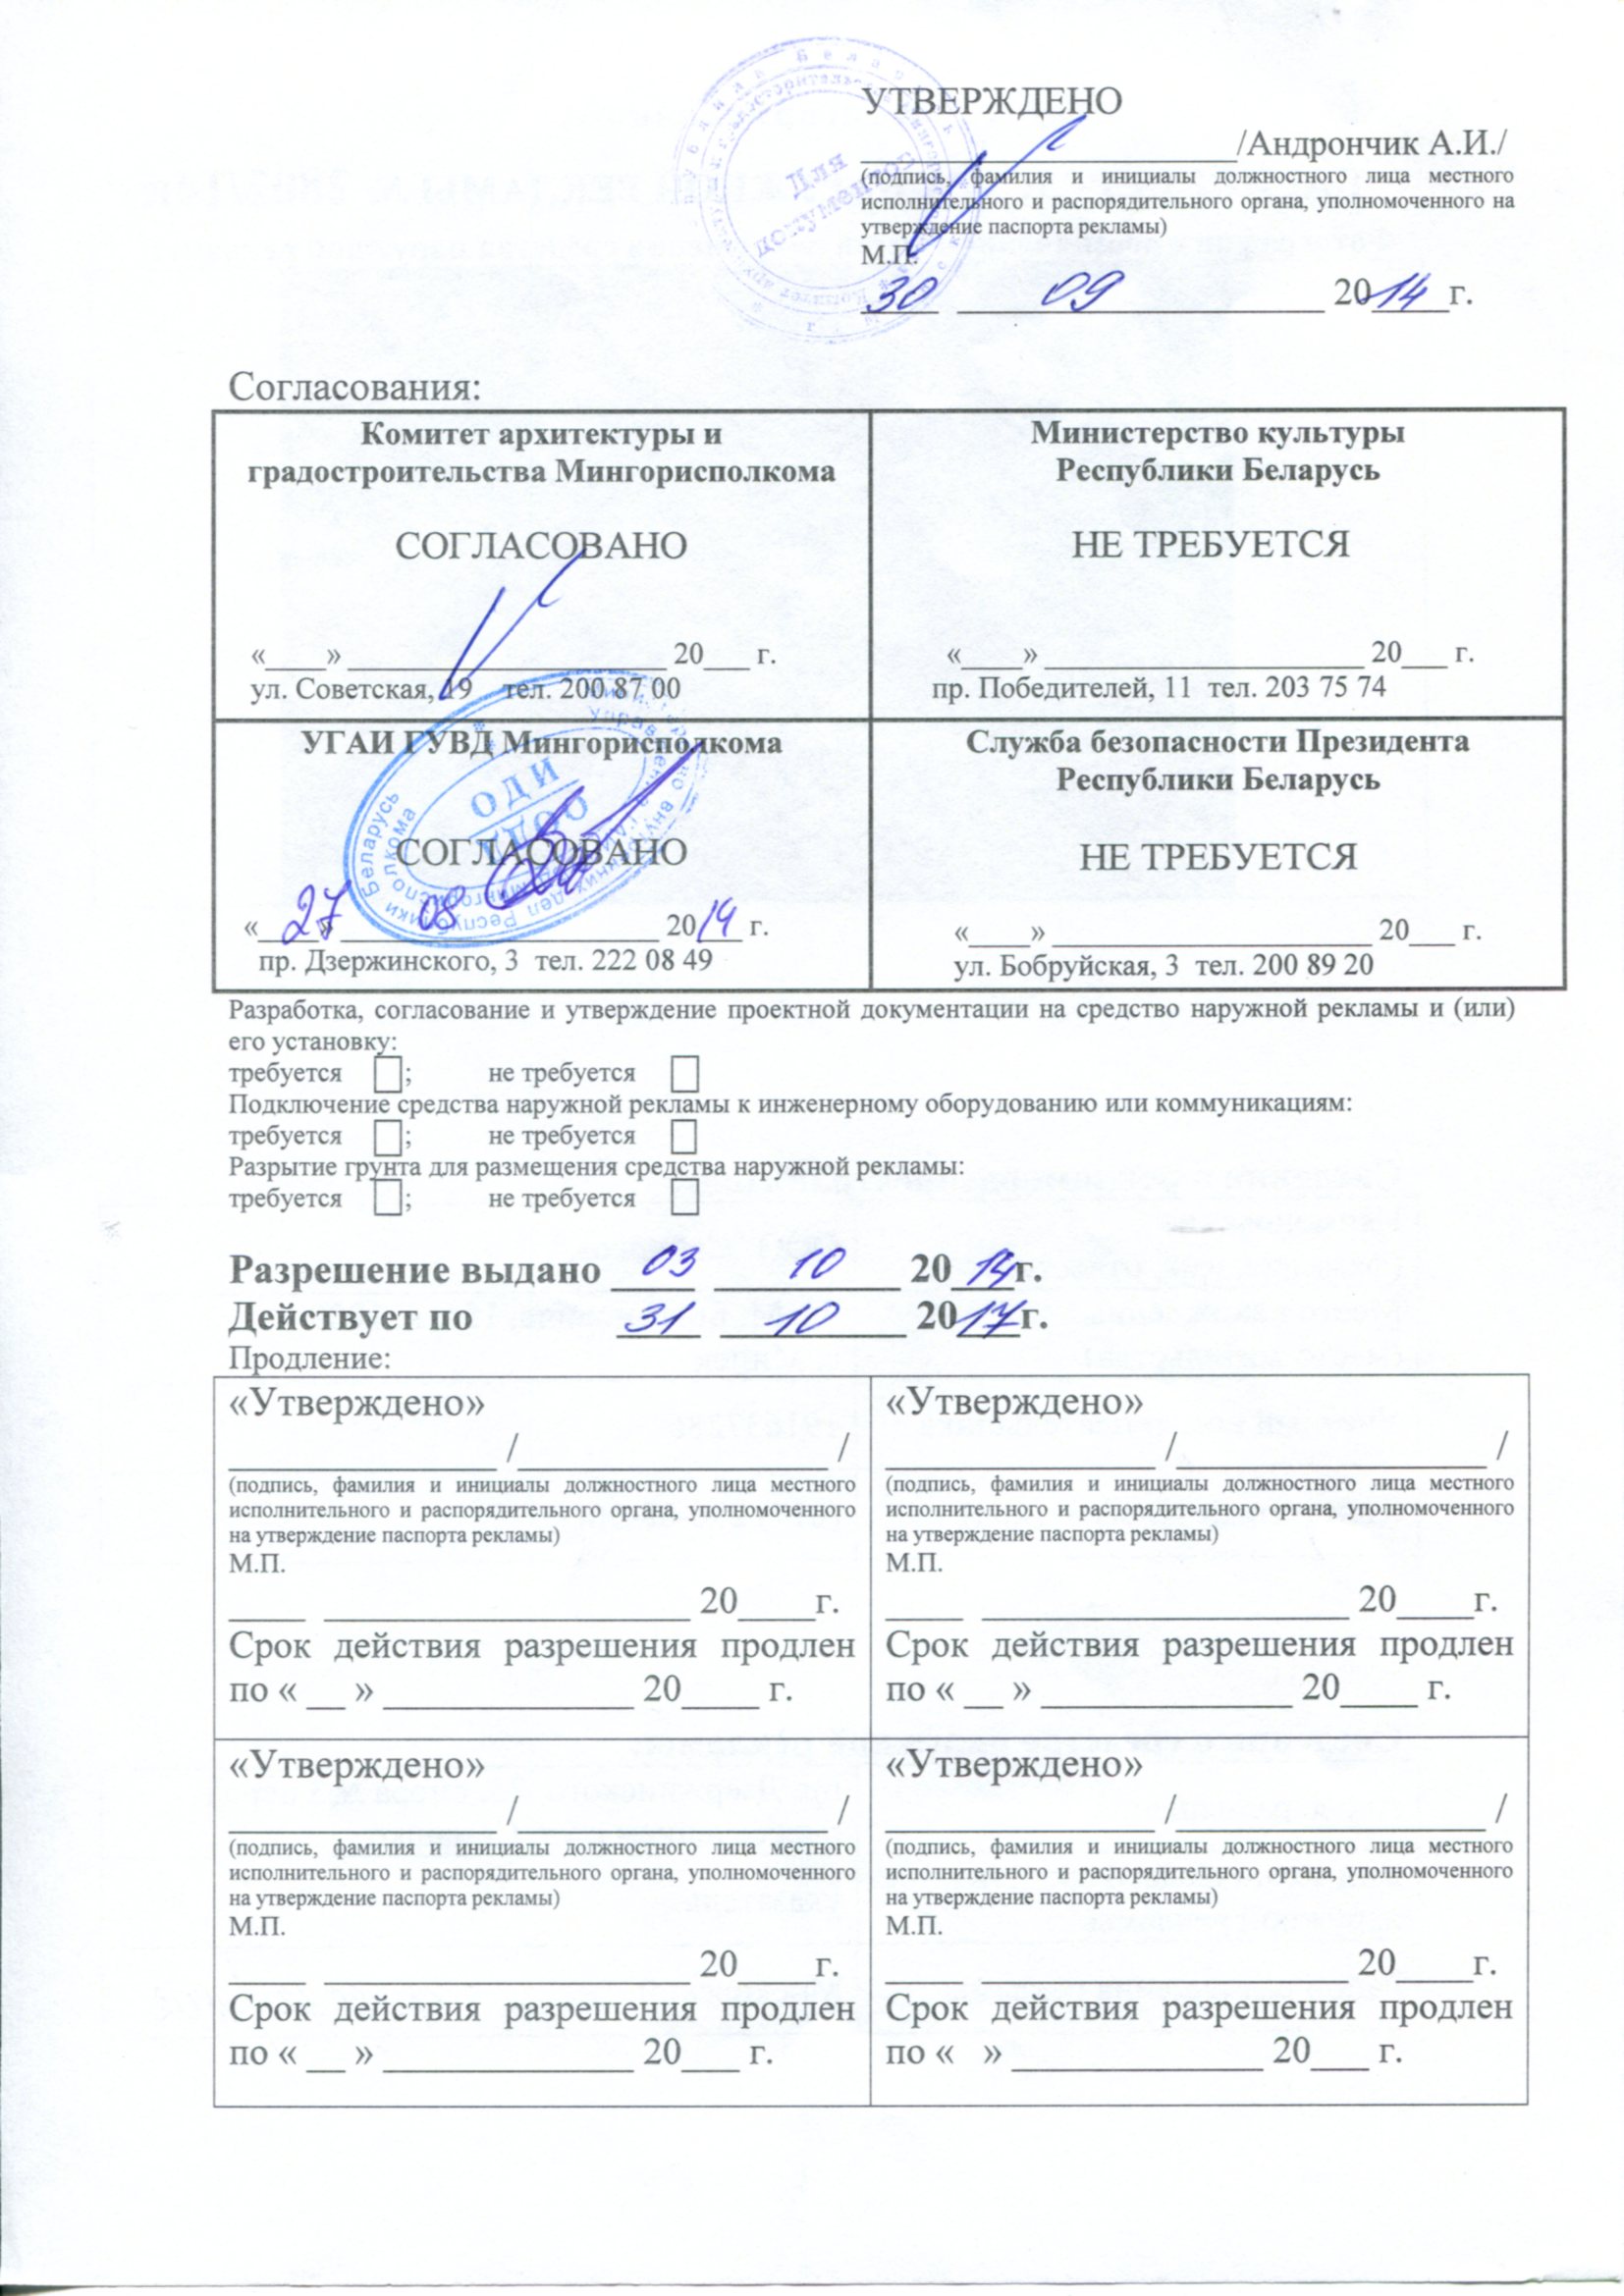 УТВЕРЖДЕНО
____________________/Андрончик А.И./
(подпись, фамилия и инициалы должностного лица местного
исполнительного и распорядительного органа, уполномоченного на
утверждение паспорта рекламы)
М.П.
30 09 2014 г.
Для
документов
Согласования:
Комитет архитектуры и
градостроительства Мингорисполкома
СОГЛАСОВАНО
«____» ____________________ 20___ г.
ул. Советская, 19 тел. 200 87 00
Министерство культуры
Республики Беларусь
НЕ ТРЕБУЕТСЯ
«____» ____________________ 20___ г.
пр. Победителей, 11 тел. 203 75 74
УГАИ ГУВД Мингорисполкома
ОДИ
СОГЛАСОВАНО
«27» 08 2014 г.
пр. Дзержинского, 3 тел. 222 08 49
Служба безопасности Президента
Республики Беларусь
НЕ ТРЕБУЕТСЯ
«____» ____________________ 20___ г.
ул. Бобруйская, 3 тел. 200 89 20
Разработка, согласование и утверждение проектной документации на средство наружной рекламы и (или)
его установку:
требуется ; не требуется
Подключение средства наружной рекламы к инженерному оборудованию или коммуникациям:
требуется ; не требуется
Разрытие грунта для размещения средства наружной рекламы:
требуется ; не требуется
Разрешение выдано 03 10 2014г.
Действует по 31 10 2017г.
Продление:
«Утверждено»
______________ /________________ /
(подпись, фамилия и инициалы должностного лица местного
исполнительного и распорядительного органа, уполномоченного
на утверждение паспорта рекламы)
М.П.
____ ___________________ 20____г.
Срок действия разрешения продлен
по « __ » _____________ 20____ г.
«Утверждено»
______________ /________________ /
(подпись, фамилия и инициалы должностного лица местного
исполнительного и распорядительного органа, уполномоченного
на утверждение паспорта рекламы)
М.П.
____ ___________________ 20____г.
Срок действия разрешения продлен
по « __ » _____________ 20____ г.
«Утверждено»
______________ /________________ /
(подпись, фамилия и инициалы должностного лица местного
исполнительного и распорядительного органа, уполномоченного
на утверждение паспорта рекламы)
М.П.
____ ___________________ 20____г.
Срок действия разрешения продлен
по « __ » _____________ 20___ г.
«Утверждено»
______________ /________________ /
(подпись, фамилия и инициалы должностного лица местного
исполнительного и распорядительного органа, уполномоченного
на утверждение паспорта рекламы)
М.П.
____ ___________________ 20____г.
Срок действия разрешения продлен
по « » _____________ 20___ г.